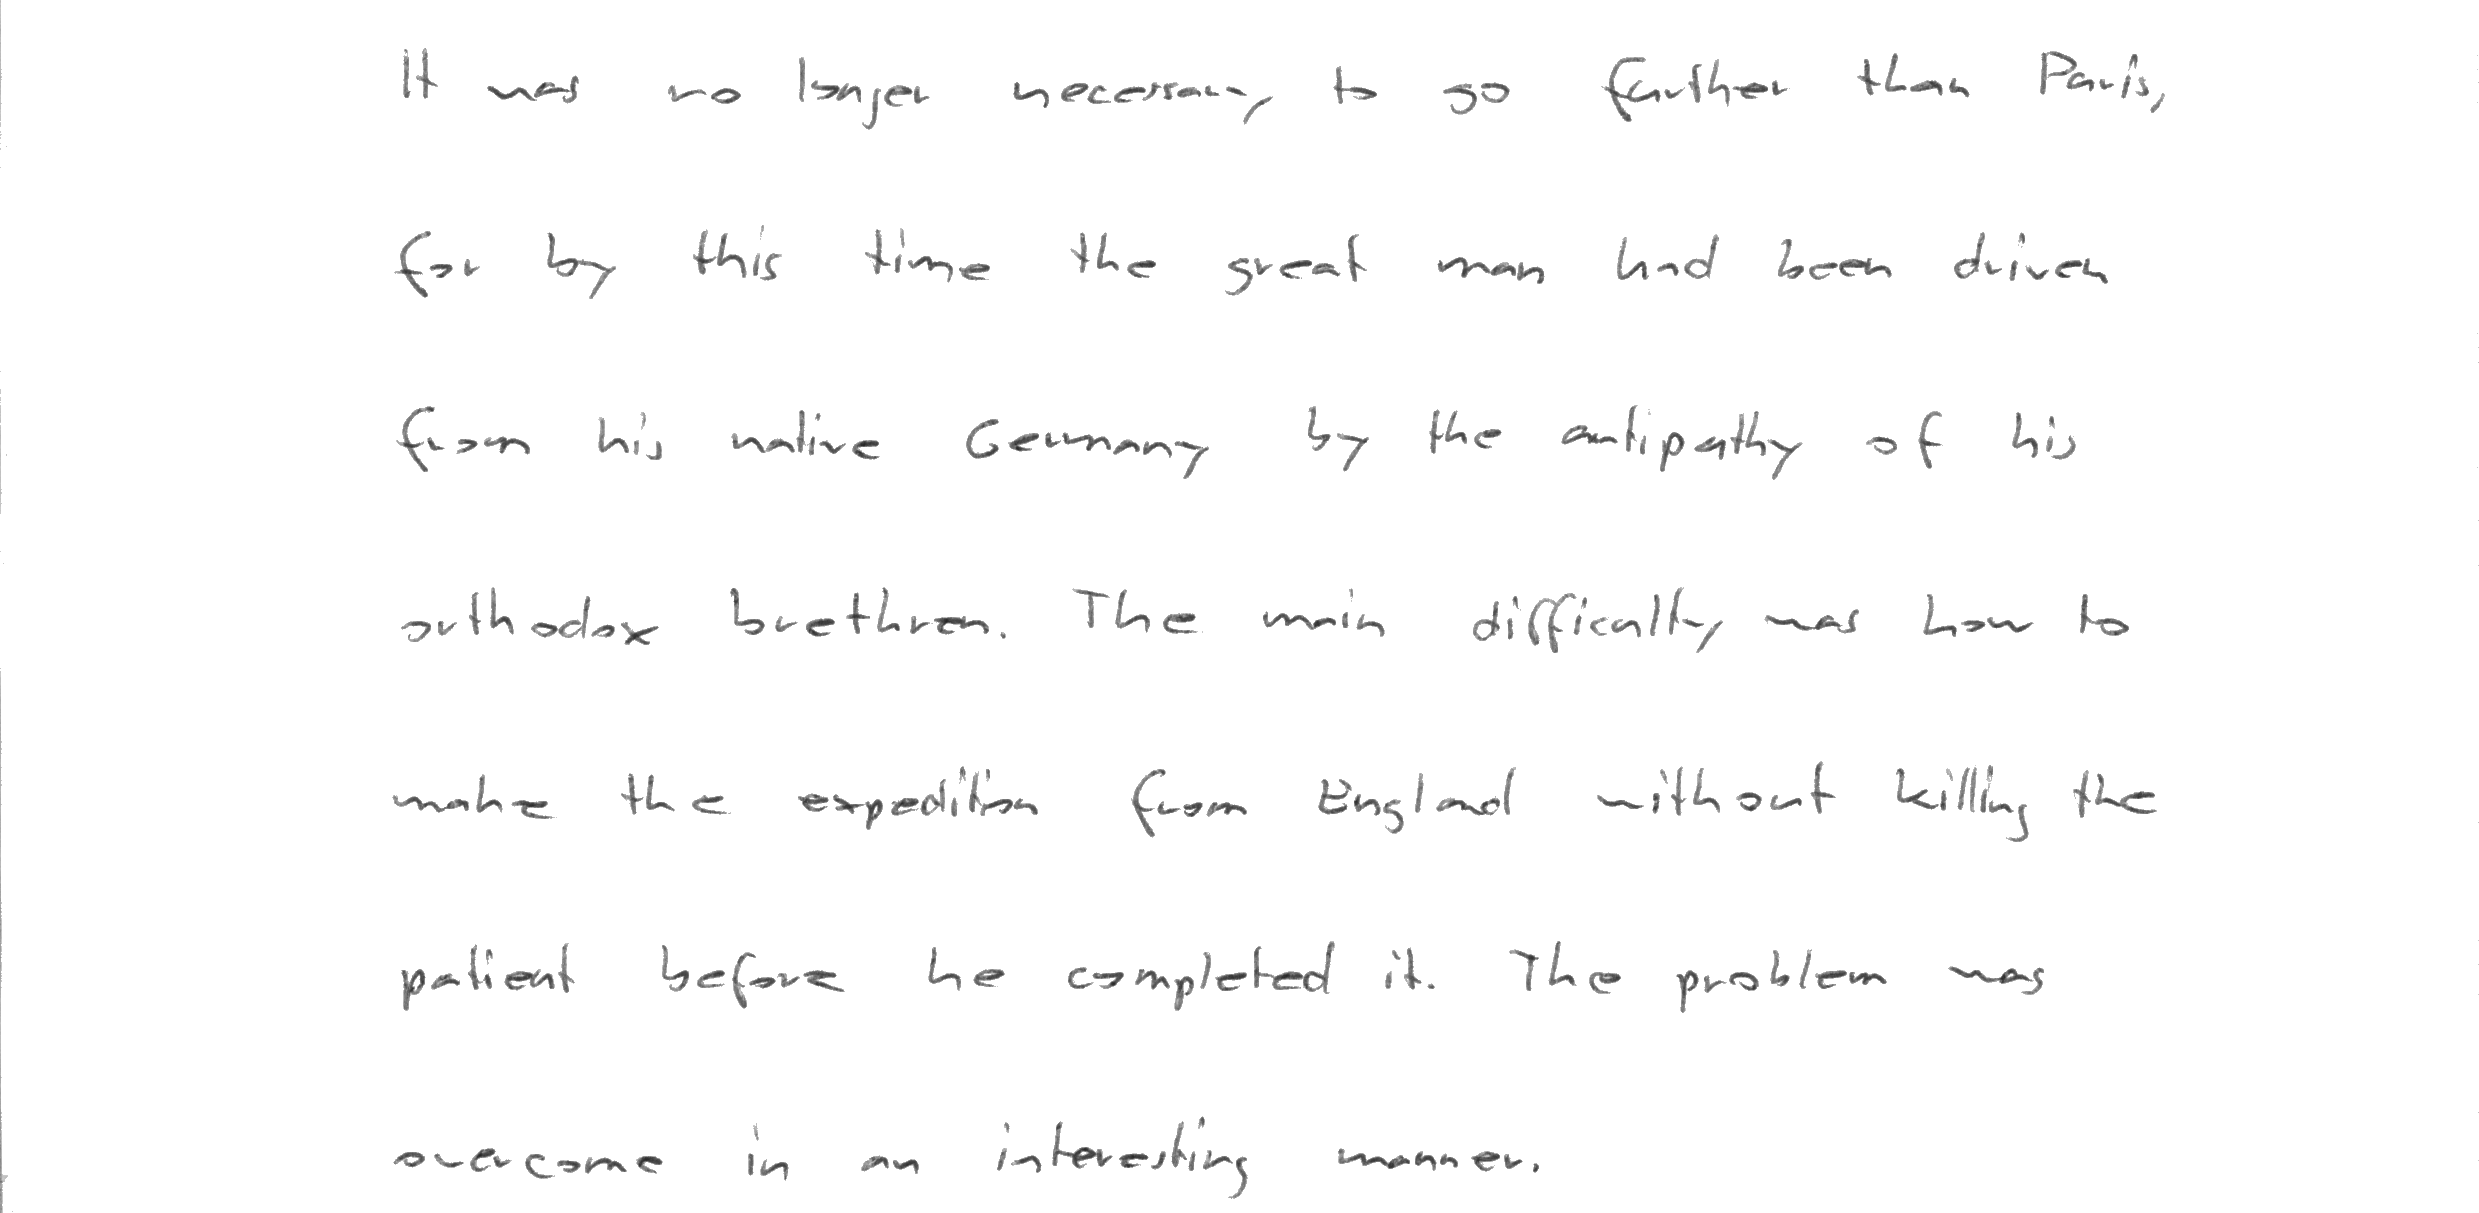 It was no longer necessary to go farther than Paris,
for by this time the great man had been driven
from his native Germany by the antipathy of his
orthodox brethren. The main difficulty was how to
make the expedition from England without killing the
patient before he completed it. The problem was
overcome in an interesting manner.